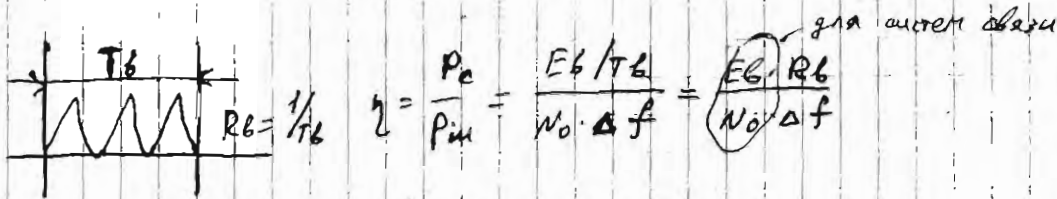 для систем связи
Tб
Rб = 1/Tб η = Pс/Pш = (Eб/Tб)/(N₀·Δf) = (Eб·Rб)/(N₀·Δf)